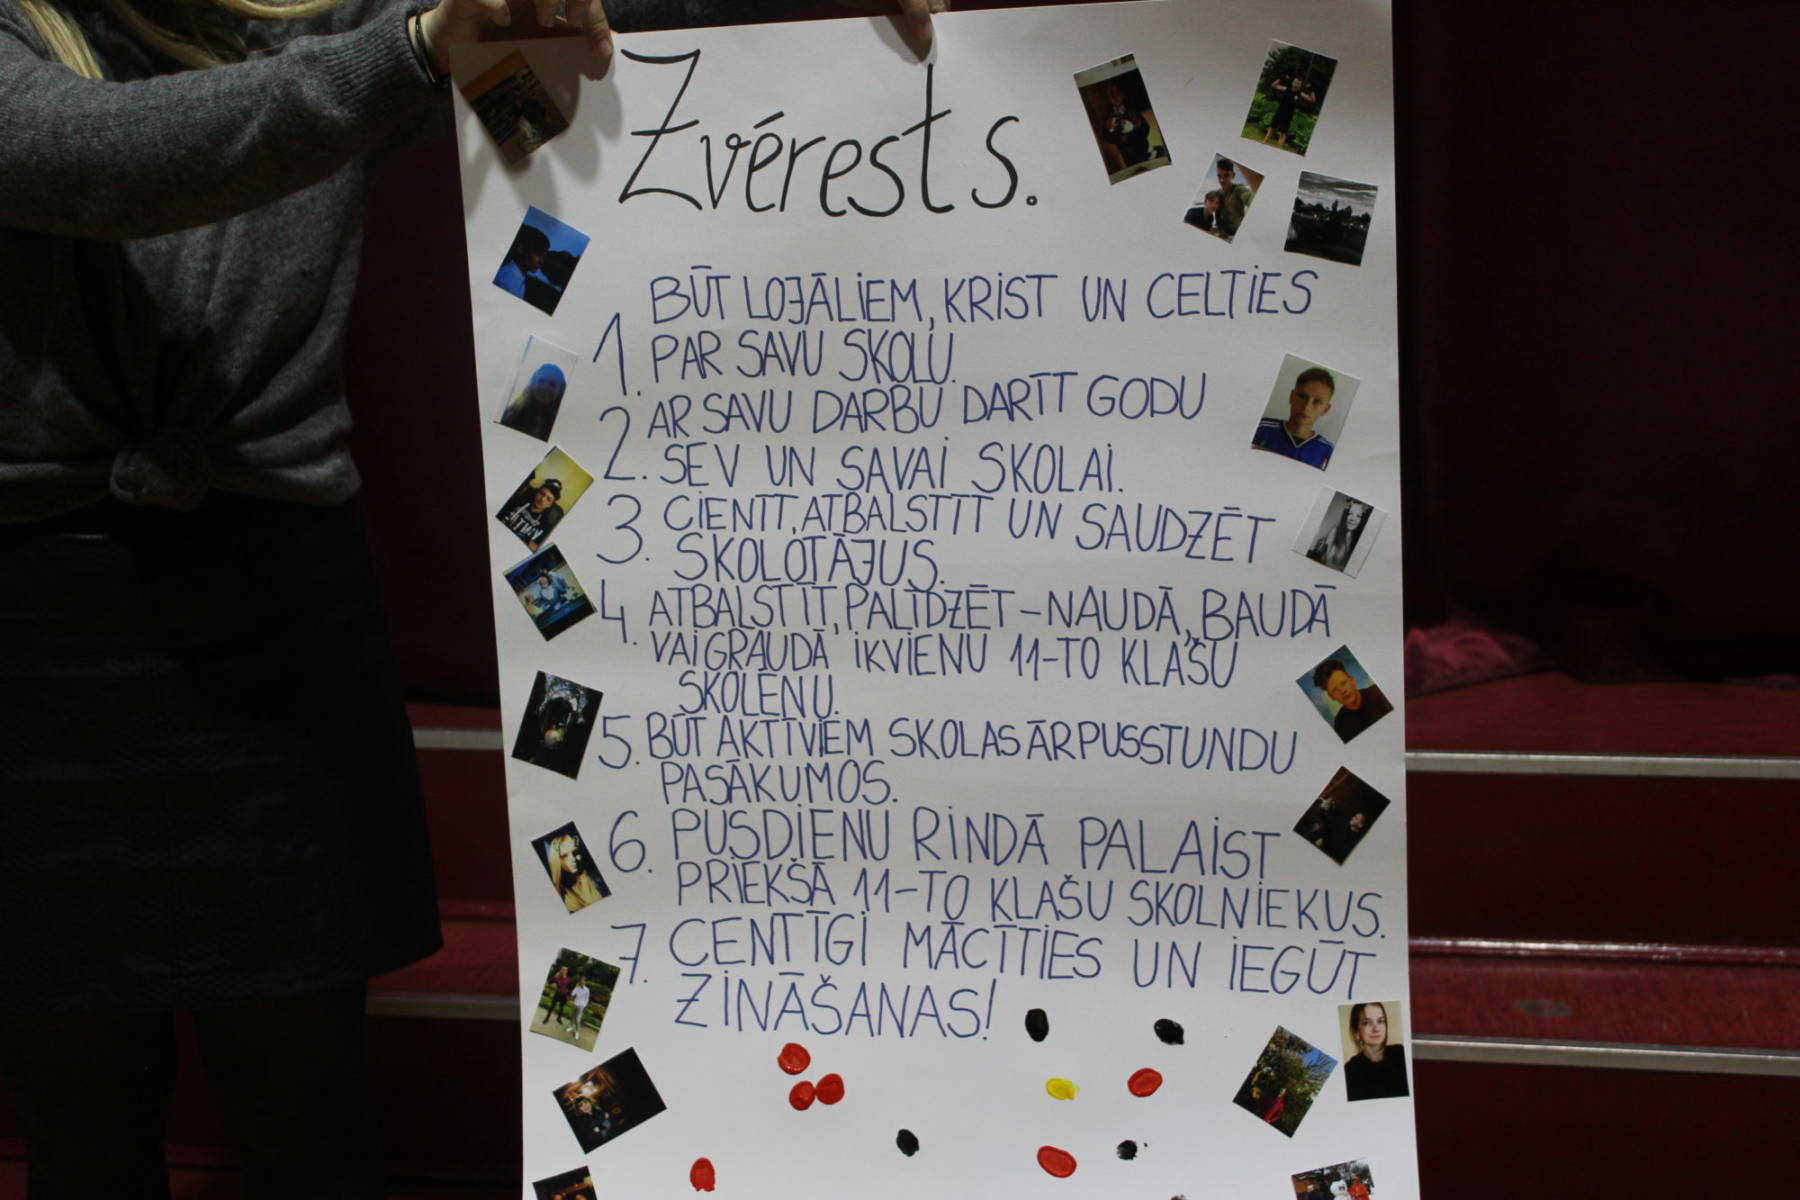 Zvērests.
BŪT LOJĀLIEM, KRIST UN CELTIES
1. PAR SAVU SKOLU.
AR SAVU DARBU DARĪT GODU
2. SEV UN SAVAI SKOLAI.
3. CIENĪT, ATBALSTĪT UN SAUDZĒT
SKOLOTĀJUS.
4. ATBALSTĪT, PALĪDZĒT – NAUDĀ, BAUDĀ
VAI GRAUDĀ, IKVIENU 11-TO KLAŠU
SKOLĒNU.
5. BŪT AKTĪVIEM SKOLAS ĀRPUSSTUNDU
PASĀKUMOS.
6. PUSDIENU RINDĀ PALAIST
PRIEKŠĀ 11-TO KLAŠU SKOLNIEKUS.
7. CENTĪGI MĀCĪTIES UN IEGŪT
ZINĀŠANAS!